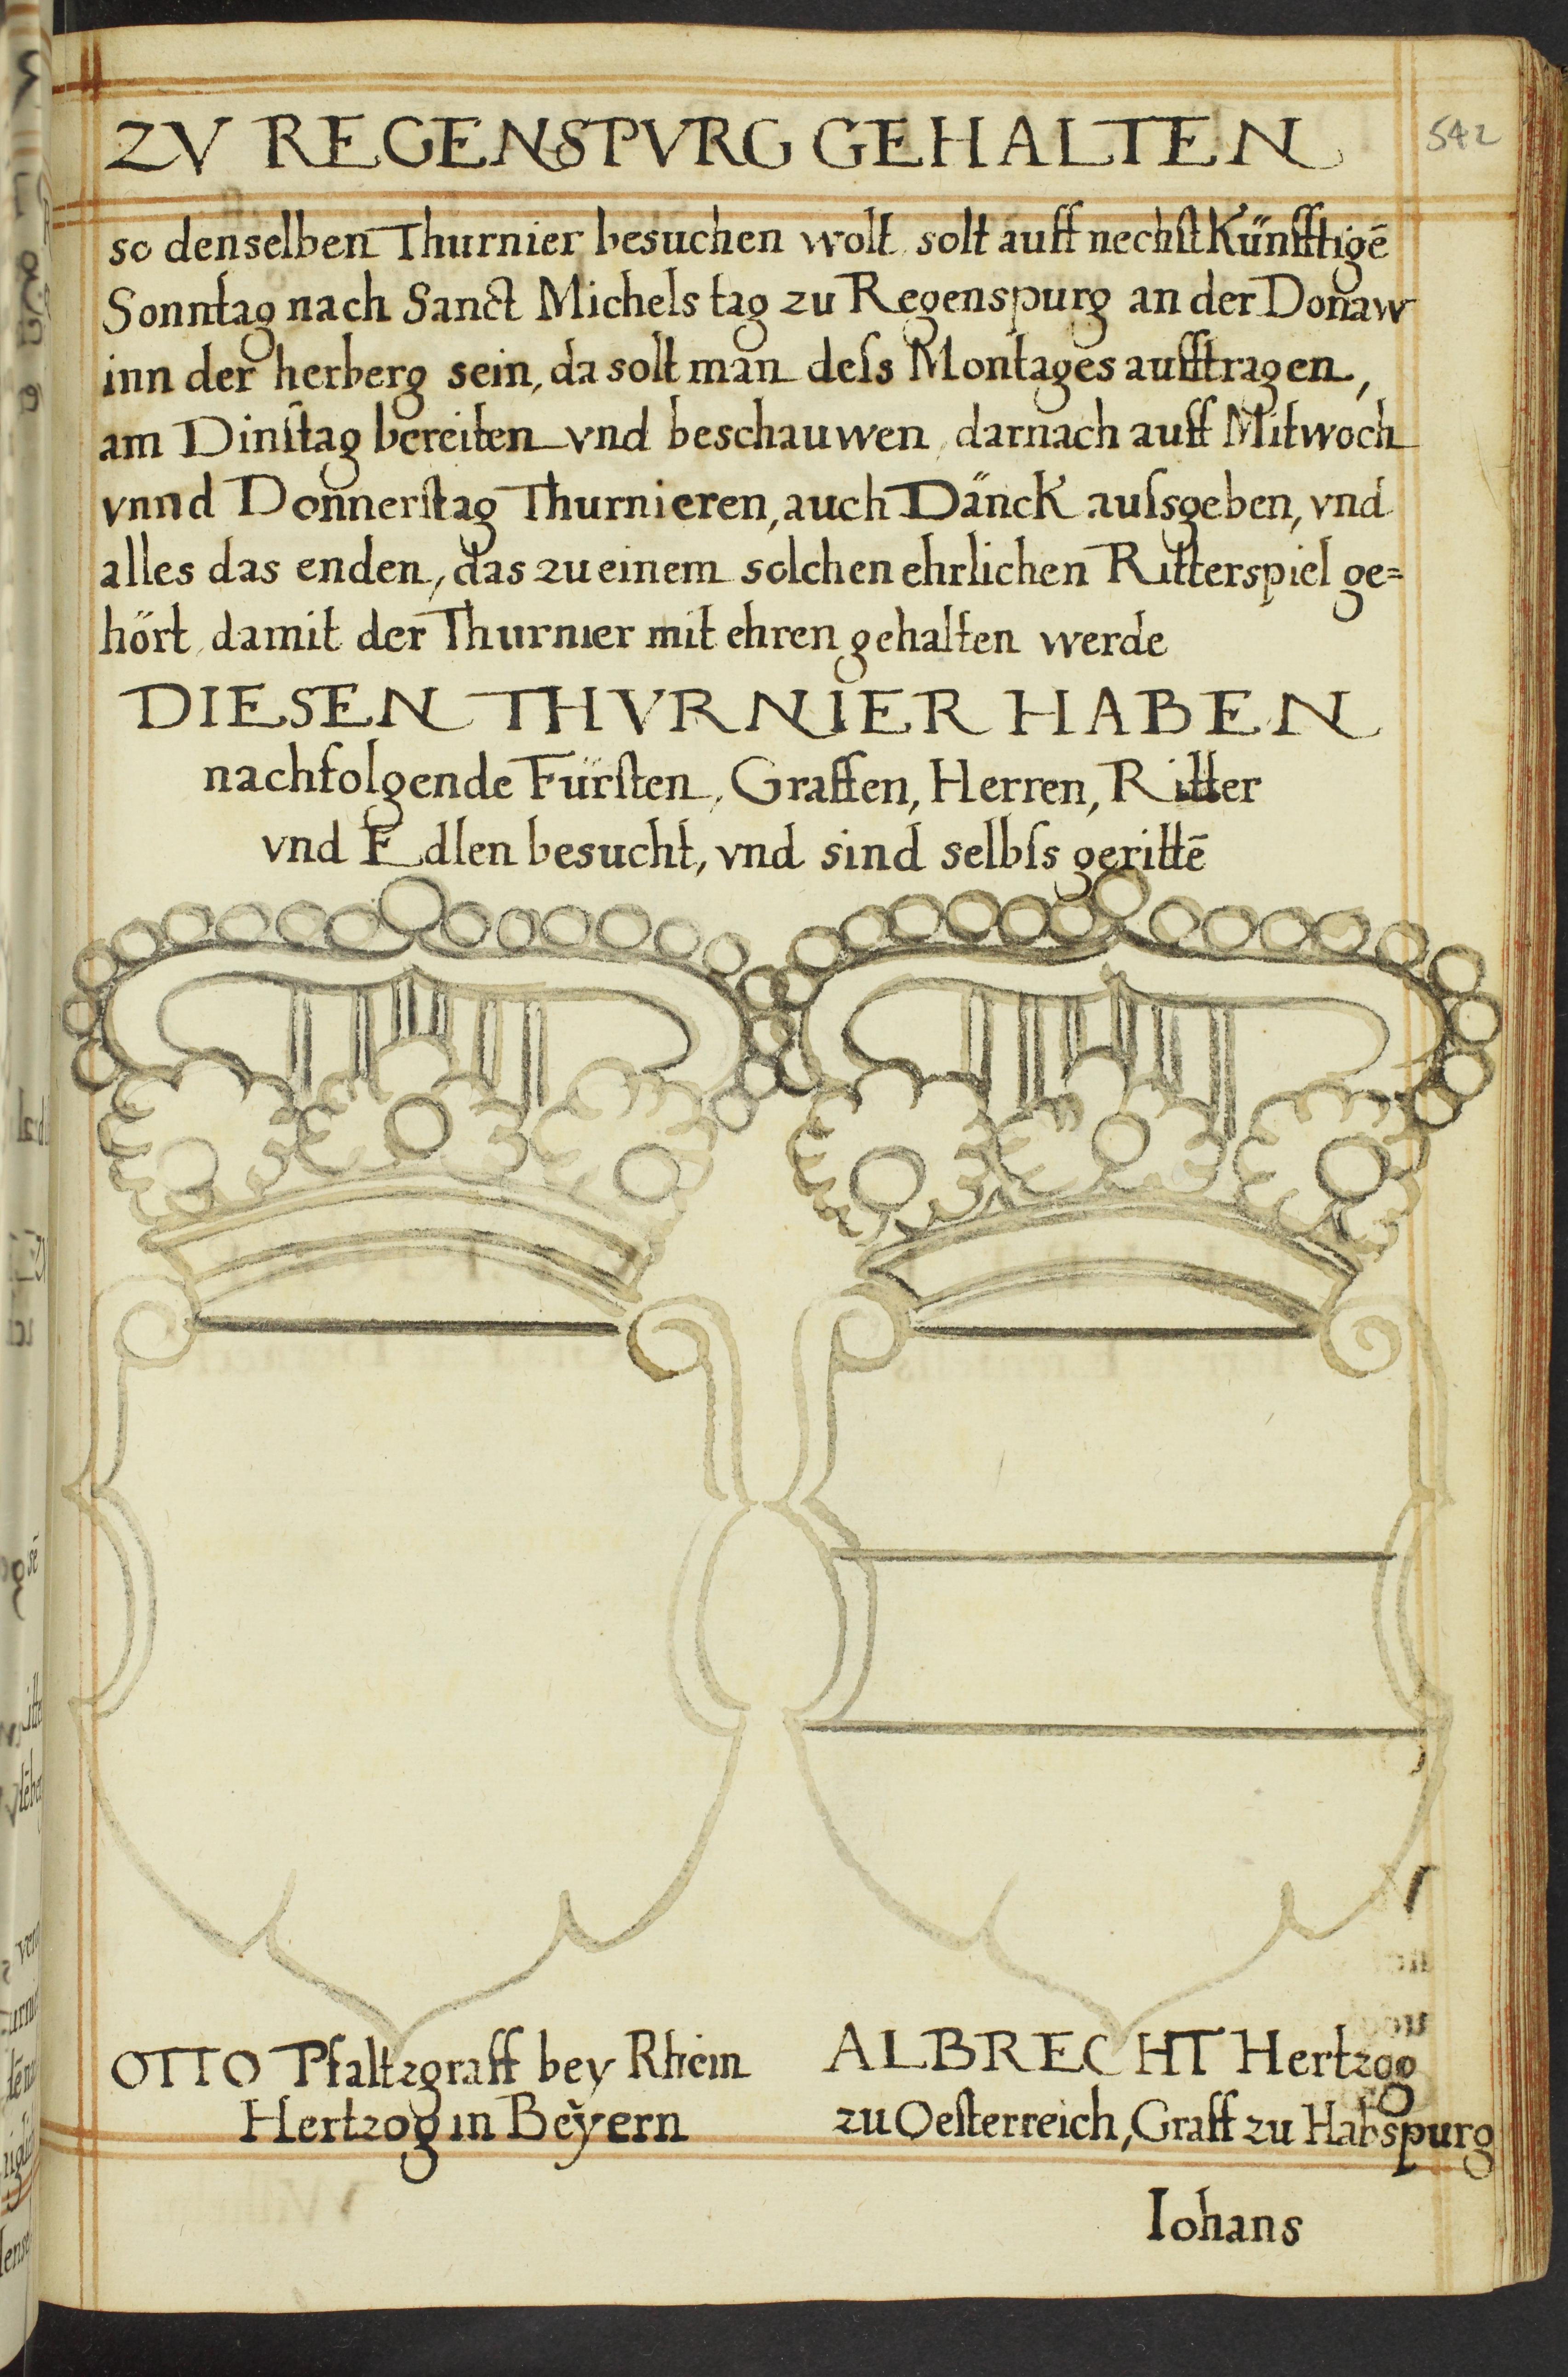 ZV REGENSPVRG GEHALTEN
542
so denselben Thurnier besuchen wolt solt auff nechst Künfftigē
Sonntag nach Sanct Michels tag zu Regenspurg an der Donaw
inn der herberg sein, da solt man deſs Montages aufftragen,
am Dinstag bereiten vnd beschauwen, darnach auff Mitwoch
vnnd Donnerstag Thurnieren, auch Dänck auſsgeben, vnd
alles das enden, das zu einem solchen ehrlichen Ritterspiel ge=
hört, damit der Thurnier mit ehren gehalten werde
DIESEN THVRNIER HABEN
nachfolgende Fürsten, Graffen, Herren, Ritter
vnd Edlen besucht, vnd sind selbſs gerittē
OTTO Pfaltzgraff bey Rhein
Hertzog in Beÿern
ALBRECHT Hertzog
zu Oesterreich, Graff zu Habspurg
Iohans